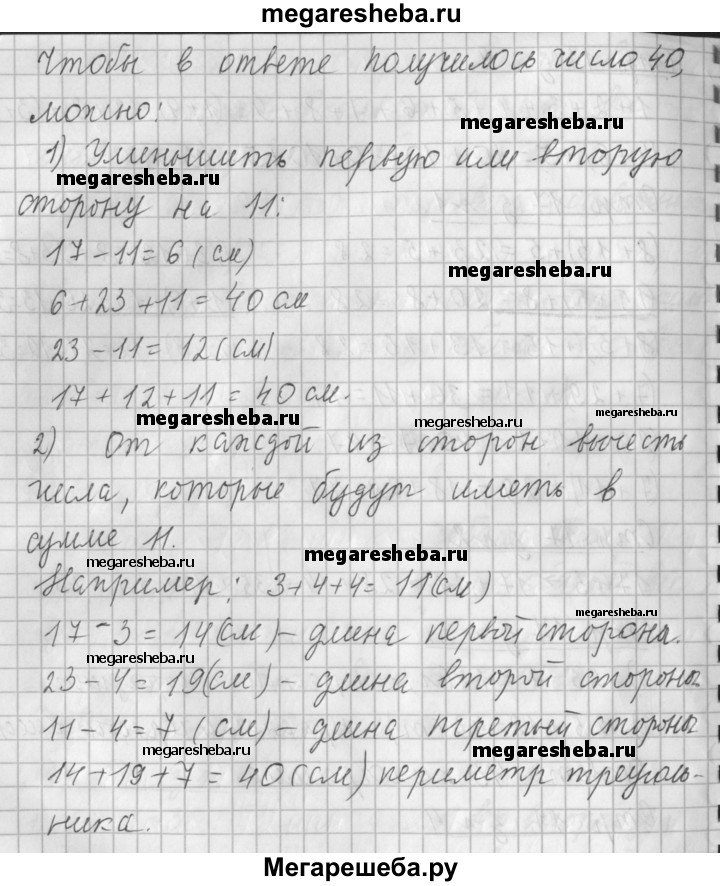 megaresheba.ru
Чтобы в ответе получилось число 40,
можно:
megaresheba.ru
1) Уменьшить первую или вторую
megaresheba.ru
сторону на 11:
17-11=6 (см)
megaresheba.ru
6+23+11=40 см
23-11=12(см)
17+12+11=40 см.
megaresheba.ru
megaresheba.ru
megaresheba.ru
2) От каждой из сторон вычесть
числа, которые будут иметь в
сумме 11.
megaresheba.ru
megaresheba.ru
Например: 3+4+4=11(см)
megaresheba.ru
17-3=14(см)-длина первой сторона.
megaresheba.ru
23-4=19(см)-длина второй стороны
11-4=7 (см)-длина третьый стороны
megaresheba.ru
megaresheba.ru
14+19+7=40(см) периметр треуголь-
ника.
Мегарешеба.ру